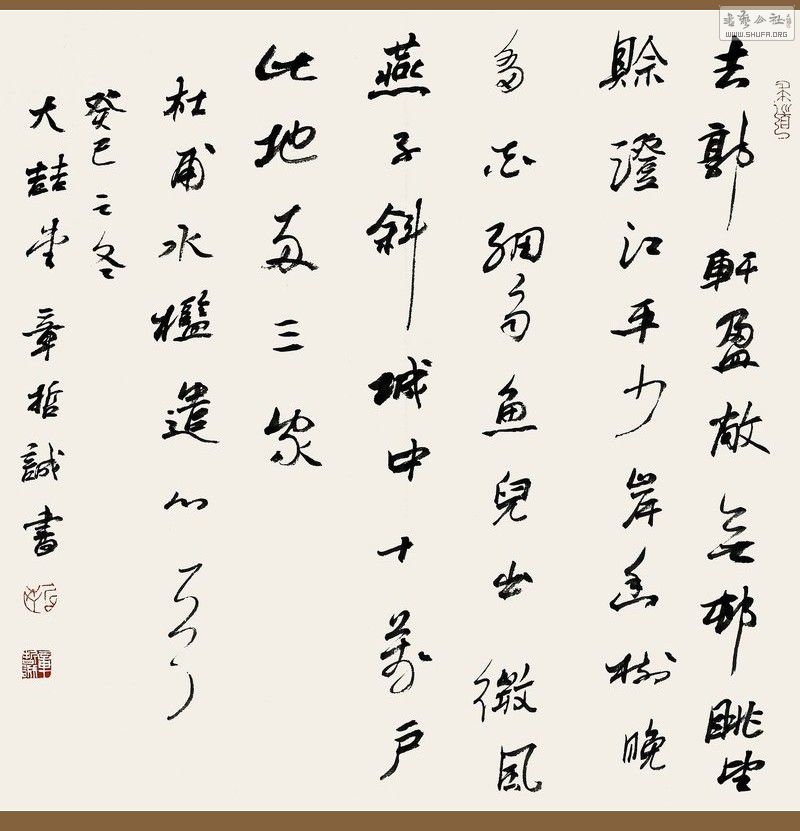 去郭軒盈敞無邨眺望
賒澄江平少岸幽樹晚
多花細雨魚兒出微風
燕子斜城中十萬戶
此地兩三家
杜甫水檻遣心
癸巳之冬
大喆堂章哲誠書
书艺公社
WWW.SHUFA.ORG